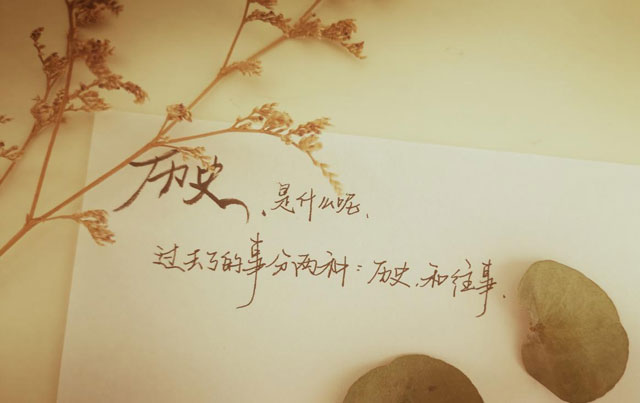 历史、是什么呢、
过去了的事分两种：历史、和往事、